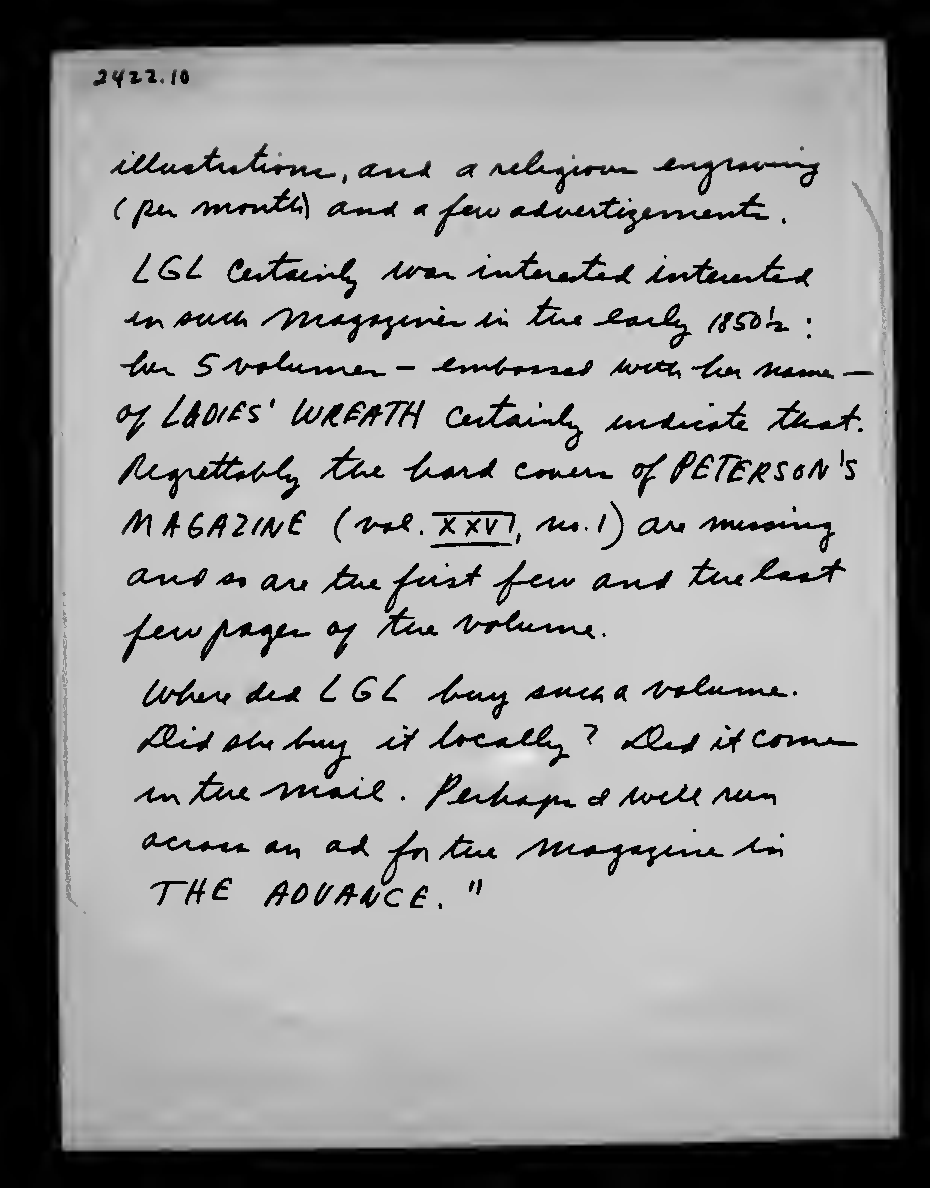 2422.10
illustrations, and a religious engraving
(per month) and a few advertizements.
LGL certainly was interested interested
in such magazines in the early 1850's:
her 5 volumes — embossed with her name —
of LADIES' WREATH certainly indicate that.
Regrettably the hard covers of PETERSON'S
MAGAZINE (vol. XXVI, no. 1) are missing
and so are the first few and the last
few pages of the volume.
Where did LGL buy such a volume.
Did she buy it locally? Did it come
in the mail. Perhaps I will run
across an ad for the magazine in
THE ADVANCE."